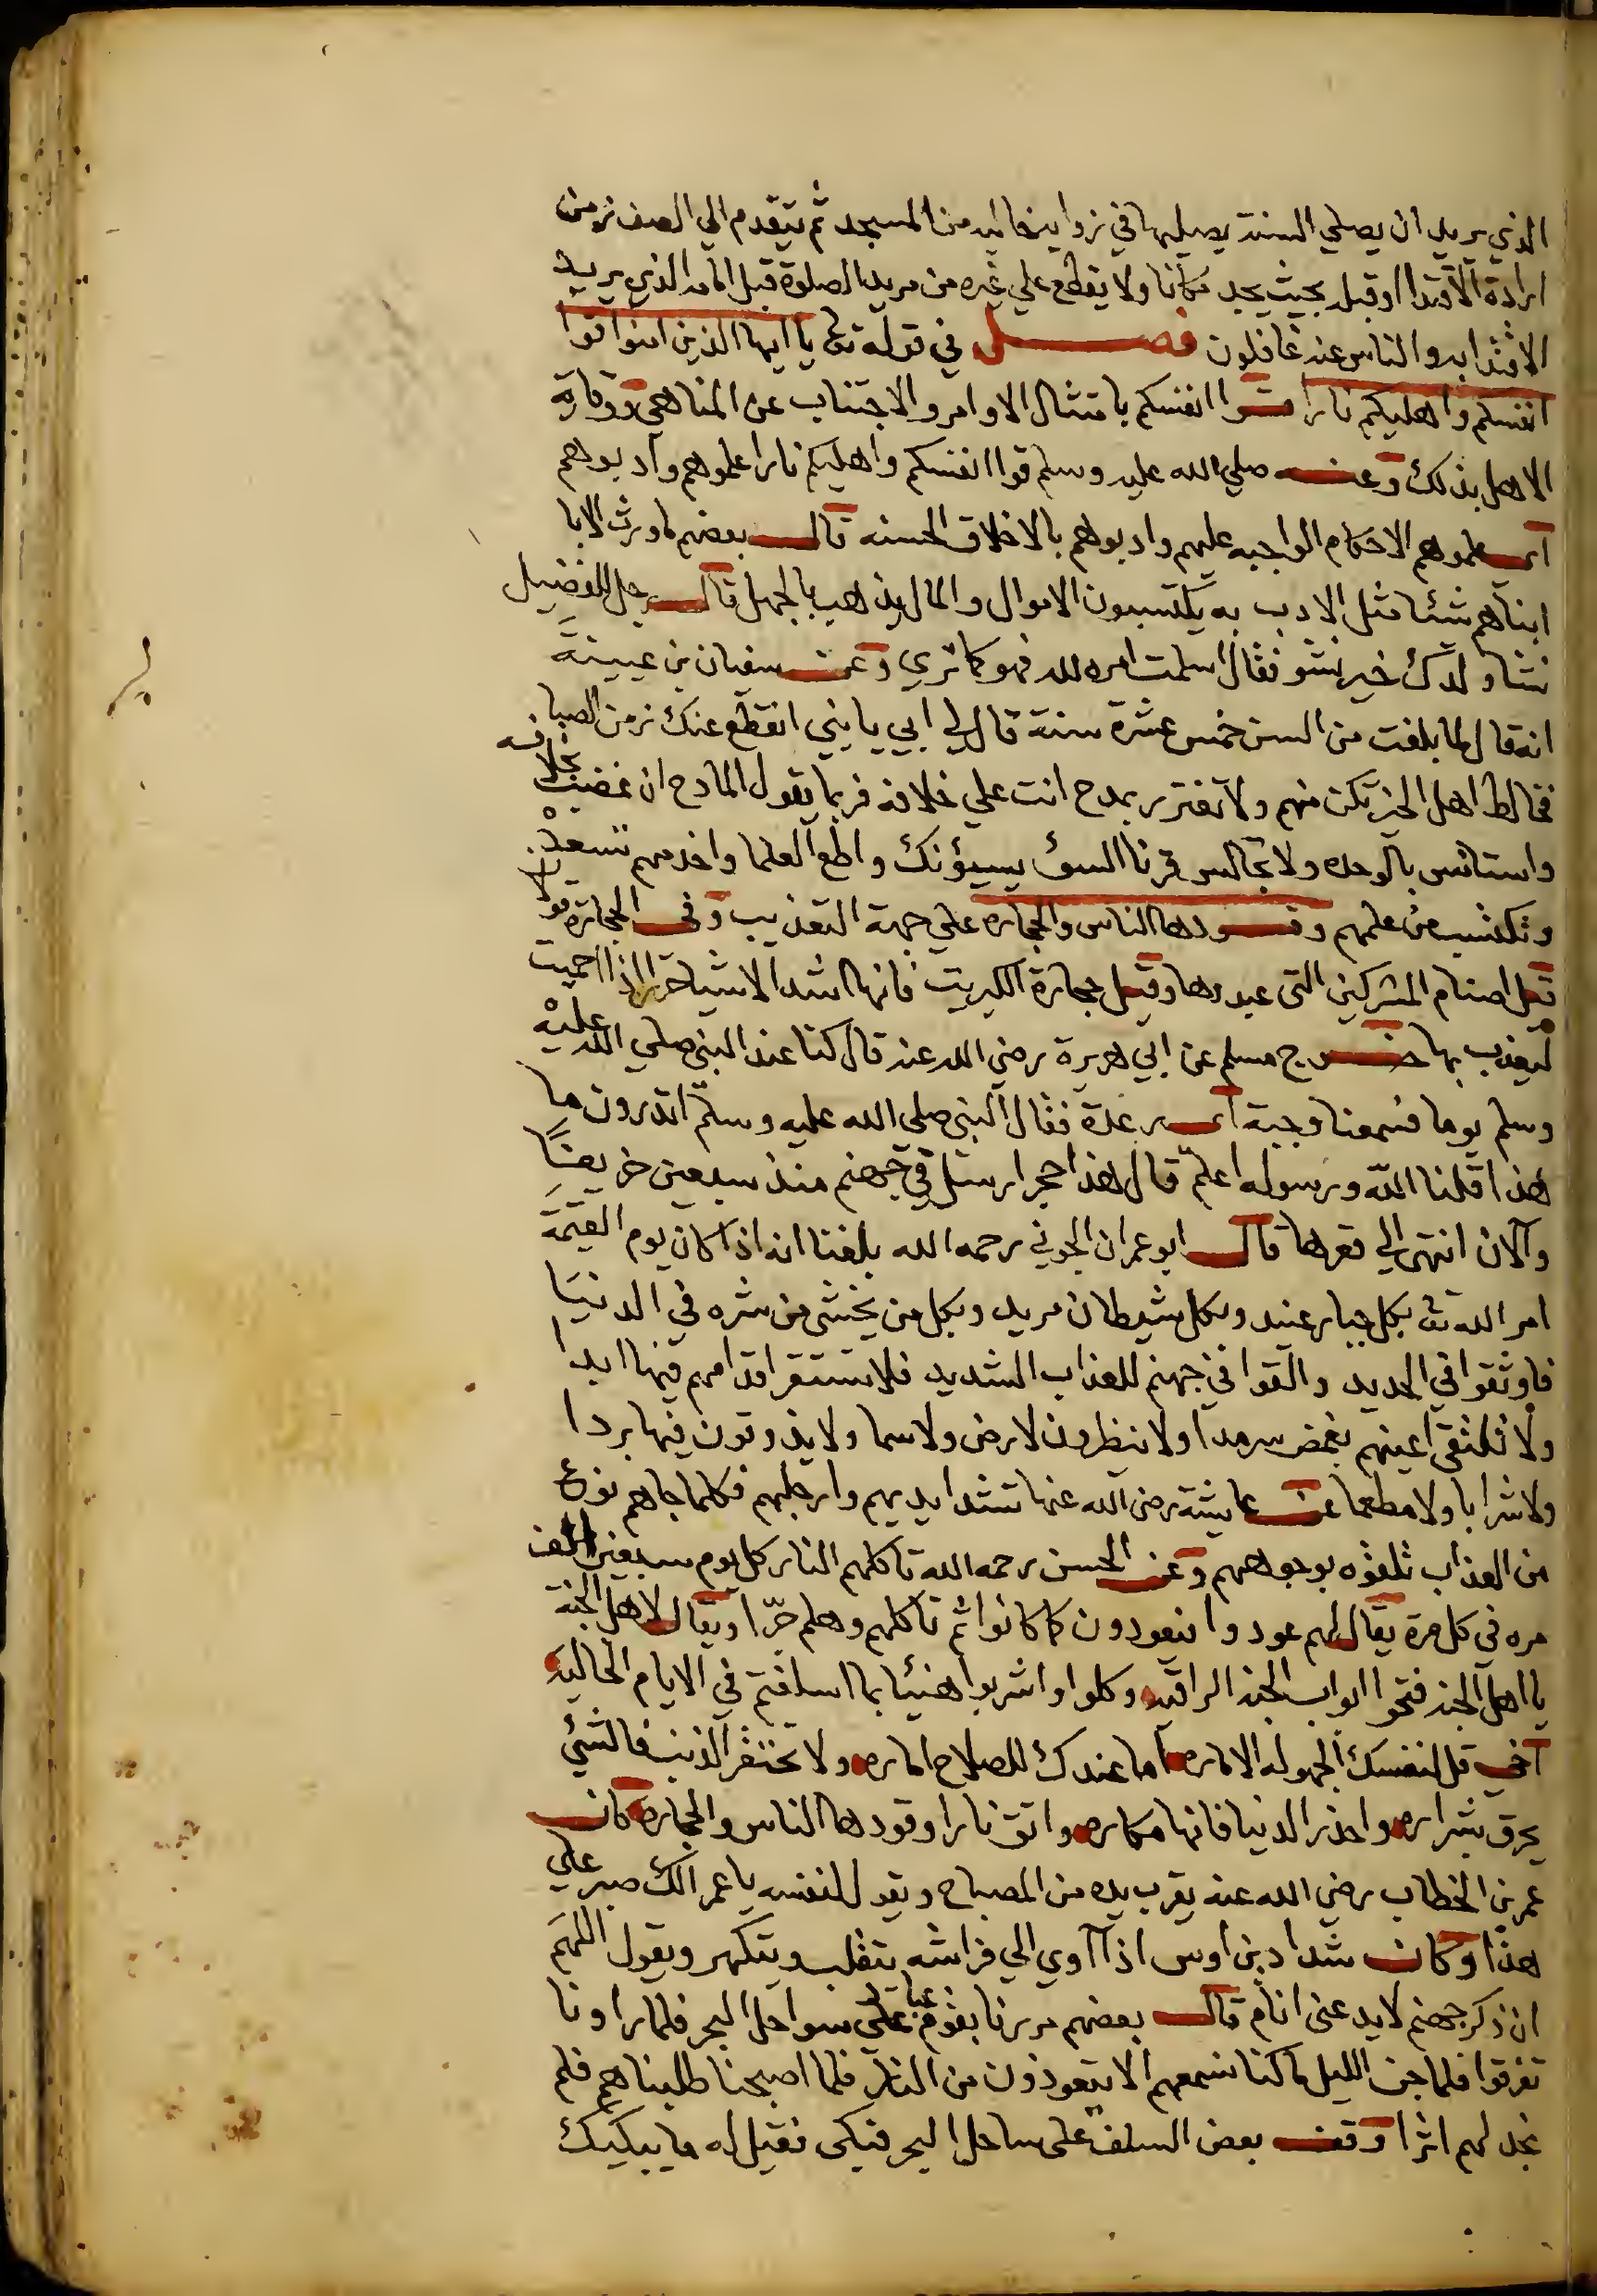 الذي يريد ان يصلي السنة يصليها في زواية خالية من المسجد ثم يتقدم الي الصف زمن
ارادة الاقتدا او قبل بحيث يجد مكانا ولا يقطع علي غيره من مريد الصلوة قبل الامام الذي يريد
الاقتدا به والناس عنه غافلون فصل في قوله تعا يا ايها الذين امنوا قوا
انفسكم واهليكم نارا قوا انفسكم بامتثال الاوامر والاجتناب عن المناهي ووقاية
الاهل بذلك وعنه صلي الله عليه وسلم قوا انفسكم واهليكم نارا علموهم وادبوهم
اي علموهم الاحكام الواجبه عليهم وادبوهم بالاخلاق الحسنه قال بعضهم ما ورث الابا
ابناهم شئا مثل الادب به يكتسبون الاموال والمال يذهب بالجهل قال رجل للفضيل
نشا ولدك خير نشو فقال اسلمت امره لله فهو كما تري وعن سفيان بن عيينة
انه قال لما بلغت من السن خمس عشرة سنة قال لي ابي يا بني انقطع عنك زمن الصبا
فخالط اهل الخير تكن منهم ولا تغترر بمدح انت علي خلافه فربما يقول المادح ان غضبت بخلافه
واستانس بالوحده ولا تجالس قرنا السوء يسيؤنك واطع العلما واخدمهم تسعد
وتكتسب من علمهم وقودها الناس والحجاره علي جهة التعذيب وفي الحجارة قولا
قيل اصنام المشركين التي عبدوها وقيل حجارة الكبريت فانها اشد الاشيا حرا اذا احميت
ليعذب بها خرج مسلم عن ابي هريرة رضي الله عنه قال كنا عند النبي صلي الله عليه
وسلم يوما فسمعنا وجبة اي رعدة فقال النبي صلي الله عليه وسلم اتدرون ما
هذا قلنا الله ورسوله اعلم قال هذا حجر ارسل في جهنم منذ سبعين خريفا
والان انتهي الي قعرها قال ابو عمران الجوني رحمه الله بلغنا انه اذا كان يوم القيمة
امر الله تعا بكل جبار عنيد وبكل شيطان مريد وبكل من يخشي من شره في الدنيا
فاوثقوا في الحديد والقوا في جهنم للعذاب الشديد فلا تستقر اقدامهم فيها ابدا
ولا تلتقي اعينهم بغمض سرمدا ولا ينظرون لارض ولا سما ولا يذوقون فيها بردا
ولا شرابا ولا مطعما عن عايشة رضي الله عنها تشد ايديهم وارجلهم فكلما جاهم نوع
من العذاب تلقوه بوجوههم وعن الحسن رحمه الله تاكلهم النار كل يوم سبعين الف
مره في كل مرة يقال لهم عودوا فيعودون كما كانوا ثم تاكلهم وهلم جرا ويقال لاهل الجنة
يا اهل الجنه فتحوا ابواب الجنه الراقيه وكلوا واشربوا هنيئا بما اسلفتم في الايام الخاليه
اخي قل لنفسك الجهوله الاماره اما عندك للصلاح اماره ولا تحتقر الذنب فالشئ
يحرق بشراره واحذر الدنيا فانها مكاره واتق نارا وقودها الناس والحجاره كان
عمر بن الخطاب رضي الله عنه يقرب يده من المصباح ويقول لنفسه يا عمر الك صبر علي
هذا وكان شداد بن اوس اذا آوي الي فراشه يتقلب ويتكهر ويقول اللهم
ان ذكر جهنم لا يدعني انام قال بعضهم مررنا بقوم عباد علي سواحل البحر فلما راونا
تفرقوا فلما جن الليل ما كنا نسمعهم الا يتعوذون من النار فلما اصبحنا طلبناهم فلم
نجد لهم اثرا وقف بعض السلف علي ساحل البحر فبكي فقيل له ما يبكيك